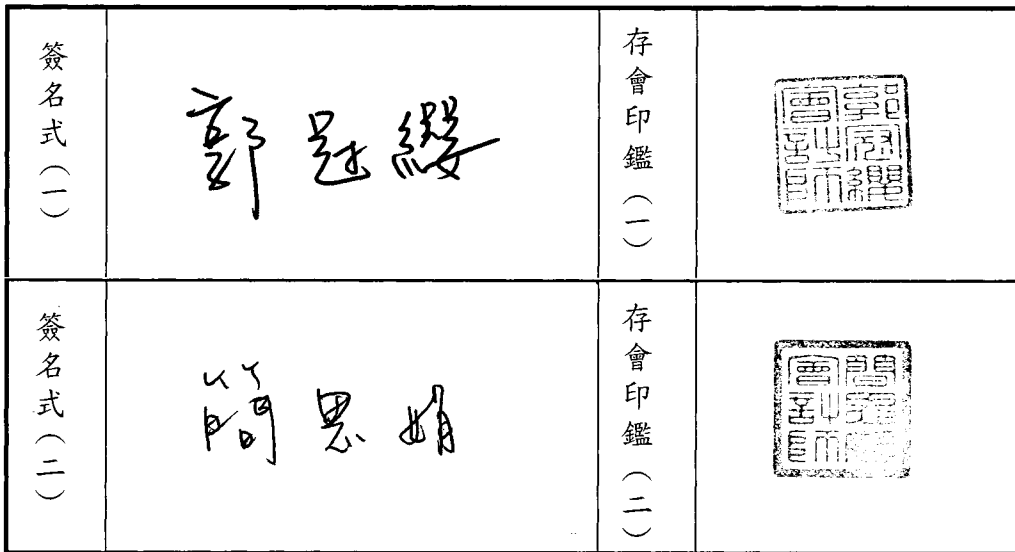 簽名式（一）
郭冠纓
存會印鑑（一）
郭冠纓會計師
簽名式（二）
簡思娟
存會印鑑（二）
會計師